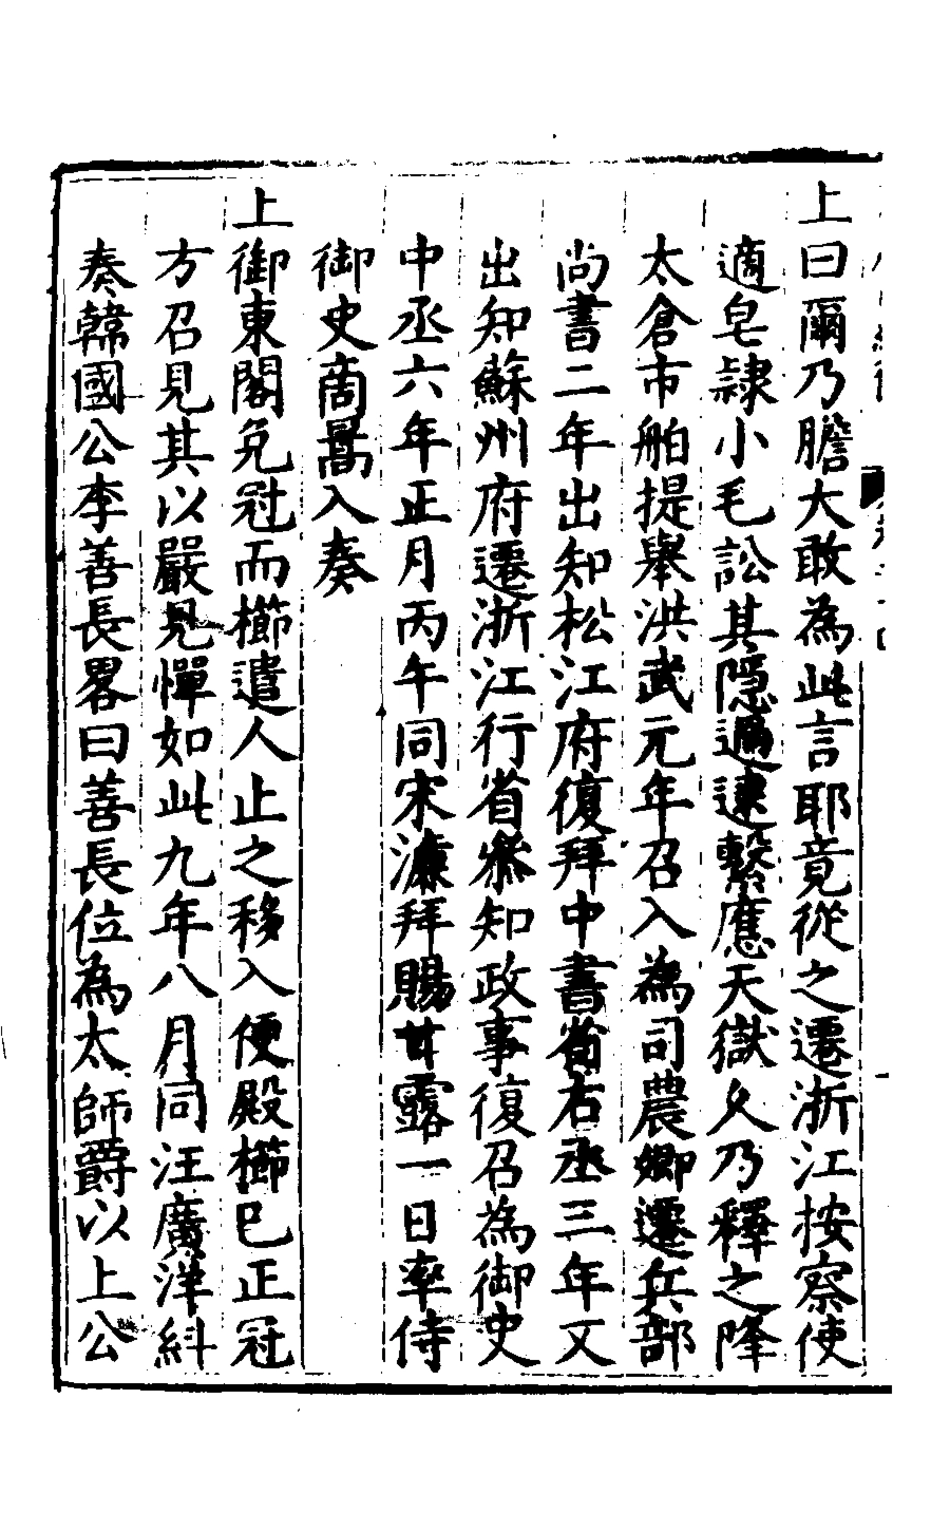 上曰爾乃膽大敢為此言耶竟從之遷浙江按察使
適皂隷小毛訟其隱逃逮繫應天獄久乃釋之降
太倉市舶提舉洪武元年召入為司農卿遷兵部
尚書二年出知松江府復拜中書省右丞三年又
出知蘇州府遷浙江行省叅知政事復召為御史
中丞六年正月丙午同宋濂拜賜甘露一日率侍
御史商暠入奏
上御東閣免冠而櫛遣人止之移入便殿櫛已正冠
方召見其以嚴見憚如此九年八月同汪廣洋糾
奏韓國公李善長畧曰善長位為太師爵以上公